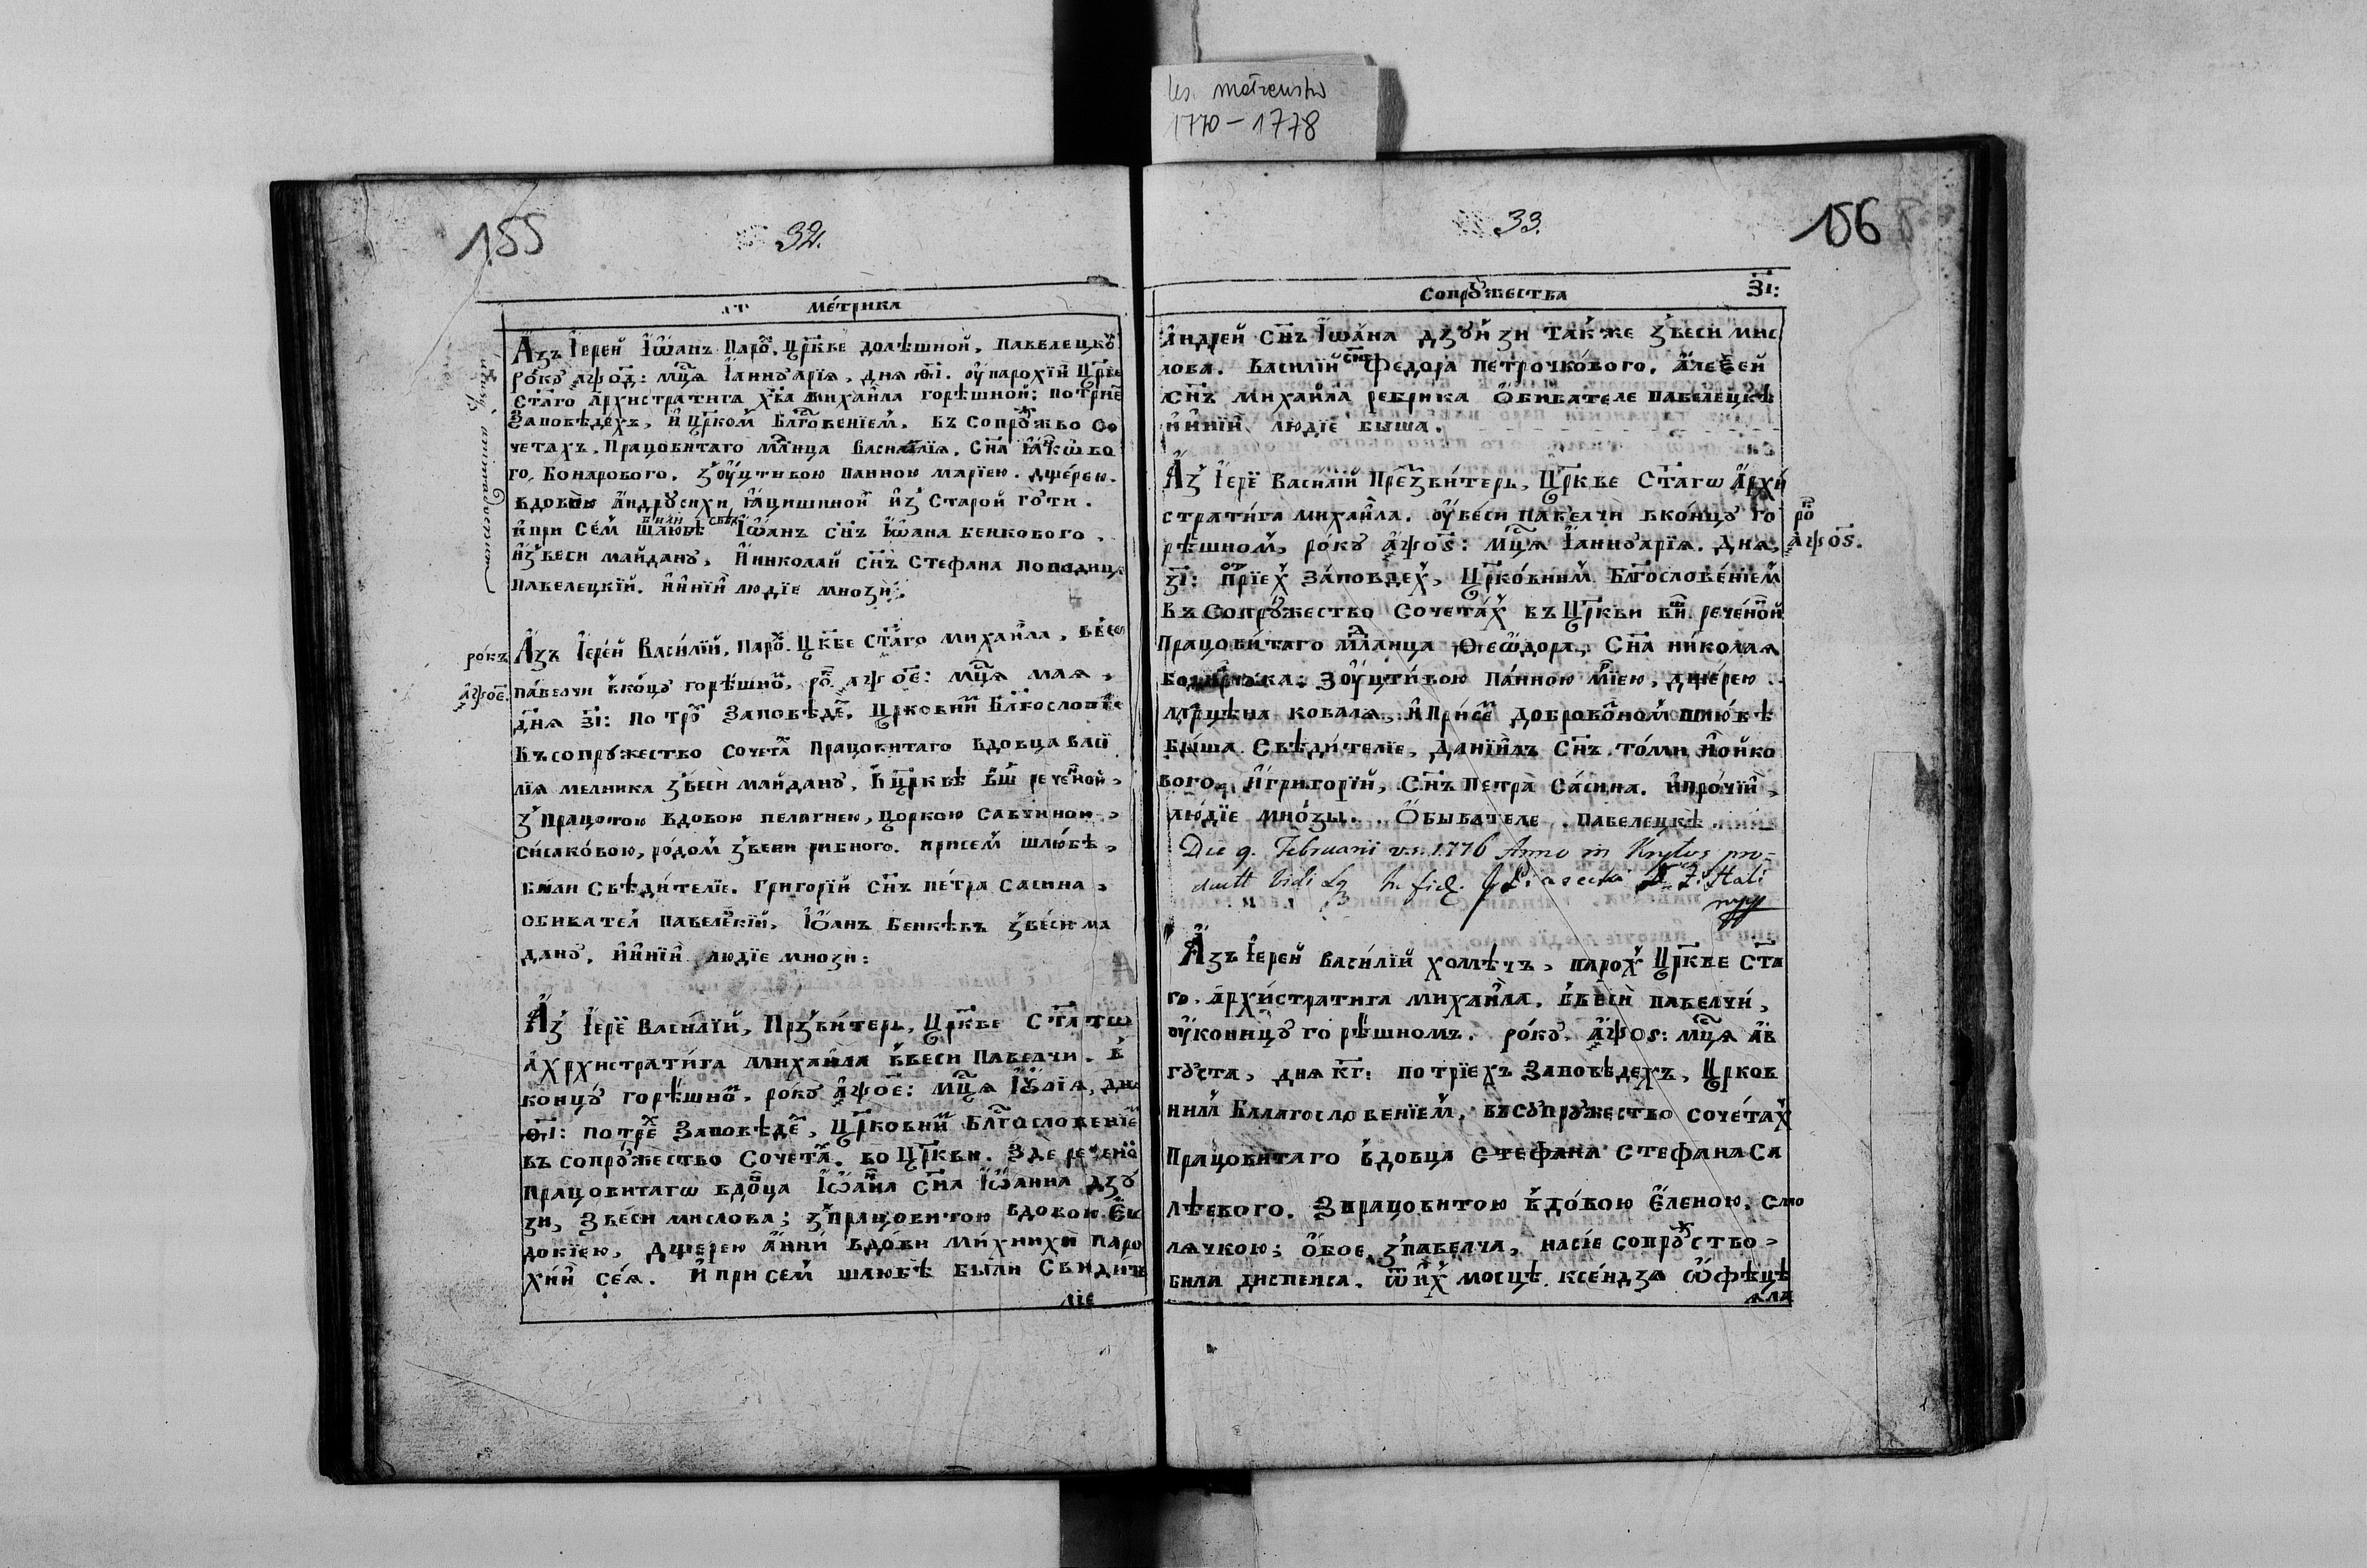 ks. małżeństw
1770 – 1778
155
32.
Ме́трика
А҆зъ І҆ерей І҆ѡ҆анъ Паро҇х. Цр҃кве долѣшной, Павелецко
ро́кꙋ ҂аѱод҃: мц҃а І҆аннꙋа́рїа, дня ѳ҃і. ᲂу҆ парохїи Цр҃кв
Ста҃го Архистратига Хв҃а Михаи́ла горѣшной; по трие҇
Заповѣдехъ, и҆ Цр҃ком Блг҃овенїем, въ Сопрꙋжво Со
четахъ. Працовитаго мл҃анца Василїа. Сн҃а Ꙗ҆кѡво
го Бонарового. З ᲂу҆цтивою панною Марїею. Дщерею.
вдовою А҆ндрꙋсихи Ꙗ҆цишиной и҆з Старой гꙋти.
и҆ при се́м шлюбѣ били свѣд І҆ѡ҆анъ сн҃ъ І҆ѡ҆ана Бенкового.
и҆з веси Майданꙋ, и҆ Николай сн҃ъ Стефана Попадиц
Павелецкїй. и҆ и҆нїи людїе мнози.
ро́къ
҂аѱое҃.
А҆зъ І҆ере́й Васи́лїй, Паро҇х. Цр҃кве Ста҃го Михаи́ла, вве́си
Па́велчи вко́цꙋ горѣшно҇, ро҇ ҂аѱое҃: мц҃а маа,
дня з҃і: по тро҇ Заповѣде҇, Црковни҇ Блг҃ослове
въ сопрꙋжество сочета҇ Працовитаго вдовца Васї
лїа мелника з ве́си Майданꙋ, в цр҃квѣ в҇ш реченной,
з Працо҇тою вдовою Пелагиею, цоркою Савчиною,
Сисако́вою, родо́м з веси Рибного. При сем шлю́бѣ,
были Свѣди́телїе. Григорїй сн҃ъ Пе́тра Сасина,
обивател Павеле́кїй, І҆ѡ҆анъ Бенкѣвъ з ве́си Ма
данꙋ. и҆ и҆нїи людїе мнози:
А҆з І҆ере҇ Васи́лїй, Прзви́терь, Цр҃кве Ста҃гѡ
А҆хрхистрати́га Михаи́ла в веси Павелчи. в
концꙋ́ горѣшно҇, рокꙋ ҂аѱое҃: мц҃а І҆ꙋ́лїа, дня
ѳ҃і: по тре҇ Заповѣде҇, Цр҃ковни҇ Блг҃ословенїе
въ сопрꙋжество Сочета҇. во Цр҃кви. Зде речено҇
Працовитагѡ вдо҇ца І҆ѡ҆анна Сн҃а І҆ѡ҆анна Дзꙋ
зи, з ве́си Мислова; з працовитою вдовою Е҆в
докїею, дщерею А҆нни вдови Михнихи Паро
хїи сеа́. и҆ при сем шлюбѣ были Свидите
лїе
33.
156
Сопрꙋжества
з҃і:
А҆ндрей сн҃ъ І҆ѡ҆а́на Дзꙋнзи также з веси Мис
лова. Василїй сн҃ъ Федора Петрочко́вого. А҆леѯей
сн҃ъ Михаи́ла Ребрика Ѻ҆бивателе Павелецкѣ
и҆ и҆нїи людїе быша.
А҆з І҆ере҇ Васи́лїй Презви́терь, Цр҃кве Ста҃гѡ А҆рхи
страти́га Михаи́ла. ᲂу҆ ве́си Павелчи в концꙋ го
рѣшном, ро́кꙋ ҂аѱоѕ҃: мц҃а І҆аннꙋа́рїа. дня,
ро҇
҂аѱоѕ҃.
з҃і: по трїех за́повдех, Цр҃ко́вним Блг҃ослове́нїем
въ Сопрꙋжество Сочета́х въ Цр҃кви в҇н рече́нной
Працови́таго мл҃анца Ѳео́дора, Сн҃а Николаа
З ᲂу҆цти́вою Па́нною Мр҃їею, дщерею
Марцѣна Ковала, и҆ При се҇ доброво҇ном шлю́бѣ
бы́ша Свѣди́телїе, Данїи́лъ Сн҃ъ То́мы Но́йко
вого, и҆ Григорїй, Сн҃ъ Петра Са́сина. и҆ прочїи,
лю́дїе мно́зы. Ѻ҆бывателе. Павелецкѣ.
Die 9. Februarii v.s. 1776 Anno in Krylos pro-
duct Vidi
А҆зъ І҆ерей Василїй Хомѣчъ, парох Цр҃кве Ста҃
го. Архистратига Михаи́ла. в веси́ Павелчи́,
ᲂу҆ конницꙋ горѣшномъ. ро́кꙋ. ҂аѱоѕ: мц҃а А҆в
гꙋста, дня к҃г: по трїехъ Заповѣдехъ, Црков
ним Благословенїем, въ сꙋпрꙋжество соче́тах
Працовитаго вдовца Стефана Стефана Са
лѣевого. З працовитою вдовою Е҆леною, Смо
лячкою; Ѻ҆бое з Павелча, на сїе сопрꙋ҇ство
била диспенса. ѿ и҆х мосце ксендза Ѡ҆фѣцѣ
ала